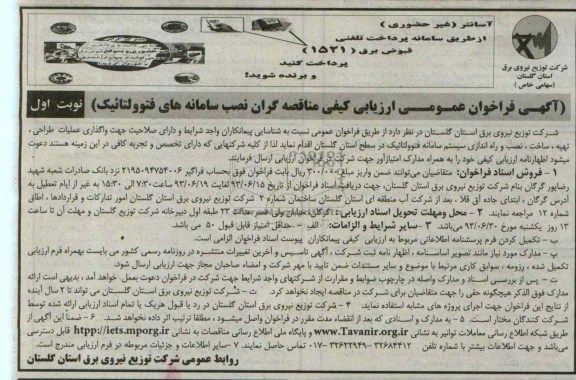 آسانتر (غیر حضوری)
از طریق سامانه پرداخت تلفنی
قبوض برق (۱۵۲۱)
پرداخت کنید
و برنده شوید!
شرکت توزیع نیروی برق
استان گلستان
(سهامی خاص)
(آگهی فراخوان عمومی ارزیابی کیفی مناقصه گران نصب سامانه های فتوولتائیک) نوبت اول
شرکت توزیع نیروی برق استان گلستان در نظر دارد از طریق فراخوان عمومی نسبت به شناسایی پیمانکاران واجد شرایط و دارای صلاحیت جهت واگذاری عملیات طراحی ،
تهیه ، ساخت ، نصب و راه اندازی سیستم سامانه فتوولتائیک در سطح استان گلستان اقدام نماید لذا از کلیه شرکتهایی که دارای تخصص و تجربه کافی در این زمینه هستند دعوت
میشود اظهارنامه ارزیابی کیفی خود را به همراه مدارک امتیازآور جهت شرکت در ارزیابی ارسال فرمایند.
۱- فروش اسناد فراخوان: متقاضیان می‌توانند ضمن واریز مبلغ ۲۰۰/۰۰۰ ریال بابت فروش فوق بحساب فراگیر ۲۱۹۵۰۹۴۷۵۴۰۰۶ نزد بانک صادرات شعبه شهید
رضاپور گرگان بنام شرکت توزیع برق استان گلستان، جهت دریافت اسناد فراخوان از تاریخ ۹۳/۰۶/۱۵ لغایت ۹۳/۰۶/۱۹ از ساعت ۷:۳۰ الی ۱۵:۳۰ به غیر از ایام تعطیل به
آدرس گرگان ، ابتدای جاده آق قلا ، بعد از شرکت آب منطقه ای استان گلستان ساختمان شماره ۲ شرکت توزیع نیروی برق استان گلستان امور تدارکات و قراردادها ، اطاق
شماره ۱۲ مراجعه نمایند. ۲- محل ومهلت تحویل اسناد ارزیابی: گرگان خیابان ولی عصر عدالت ۲۳ طبقه اول دبیرخانه شرکت توزیع گلستان و مهلت آن تا ساعت
۱۳ روز یکشنبه مورخ ۹۳/۰۶/۳۰ میباشد. ۳- سایر شرایط و الزامات: الف – حداقل امتیاز قابل قبول ۵۰ می باشد.
ب – تکمیل کردن فرم پرسشنامه اطلاعاتی مربوط به ارزیابی کیفی پیمانکاران پیوست اسناد فراخوان الزامی است.
پ – مدارک مورد نیاز مانند تصویر اساسنامه ، اظهار نامه ثبت شرکت ، آگهی تاسیس و آخرین تغییرات منتشره در روزنامه رسمی کشور می بایست بهمراه فرم ارزیابی
تکمیل شده ، رزومه ، سوابق کاری مرتبط با موضوع و سایر مستندات ضمن تایید با مهر شرکت و امضاء صاحبان مجاز جهت ارزیابی ارسال شود.
ت – پس از بررسی اسناد و مدارک واصله در چارچوب ضوابط و مقررات از شرکتهای واجد شرایط جهت شرکت در فراخوان دعوت بعمل خواهد آمد ، بدیهی است ارائه
مدارک فوق الذکر هیچگونه حقی را جهت متقاضیان برای شرکت در مناقصه ایجاد نخواهد کرد. ث – شرکت توزیع نیروی برق استان گلستان می تواند تا ۲ سال آینده
از نتایج این فراخوان جهت اجرای پروژه های مشابه استفاده نماید. ۴- شرکت توزیع نیروی برق استان گلستان در رد یا قبول هریک یا تمام اسناد ارزیابی ارائه شده توسط
شرکت کنندگان مختار است. ۵- به مدارک و اسنادی که بعد از انقضاء مدت مقرر در فراخوان واصل میشود ، مطلقا ترتیب اثر داده نخواهد شد. ۶- ضمناً این آگهی از
طریق شبکه اطلاع رسانی معاملات توانیر به نشانی www.Tavanir.org.ir و پایگاه ملی اطلاع رسانی مناقصات به نشانی http://iets.mporg.ir قابل دسترسی
می‌باشد و جهت اطلاعات بیشتر با شماره تلفن ۳۲۶۸۴۴۱۲ – ۳۲۶۲۲۹۴۹-۰۱۷ تماس حاصل نمایند. ۷- سایر اطلاعات و جزئیات مربوطه در فرم ارزیابی مندرج است.
روابط عمومی شرکت توزیع نیروی برق استان گلستان